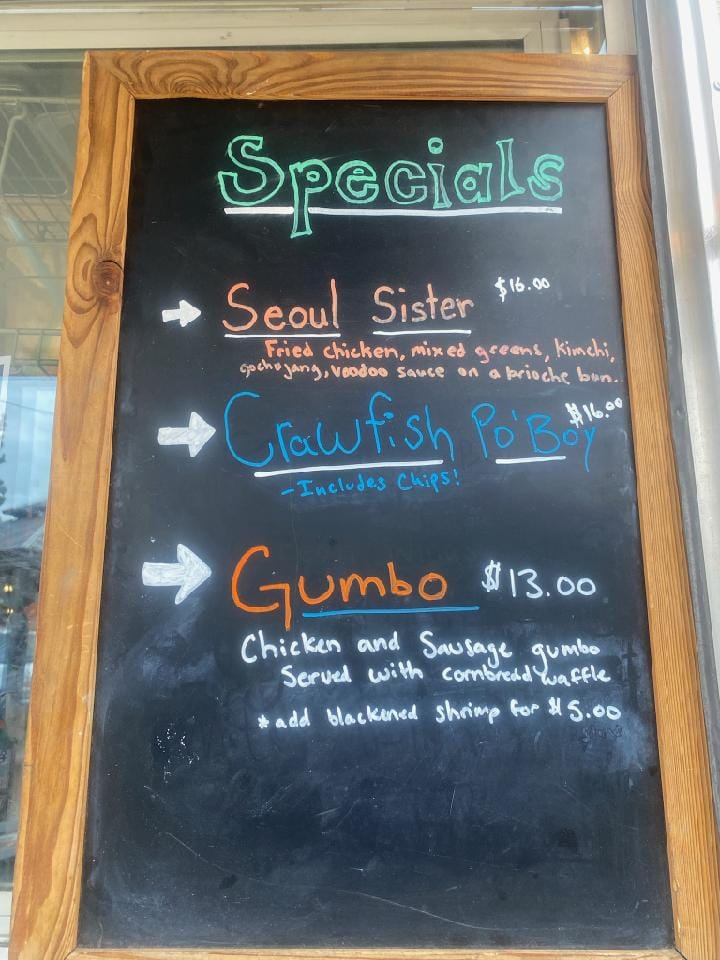 Specials
Seoul Sister $16.00
Fried chicken, mixed greens, kimchi,
gochujang, voodoo sauce on a brioche bun.
Crawfish Po'Boy $16.00
- Includes Chips!
Gumbo $13.00
Chicken and Sausage gumbo
Served with cornbread waffle
* add blackened shrimp for $5.00